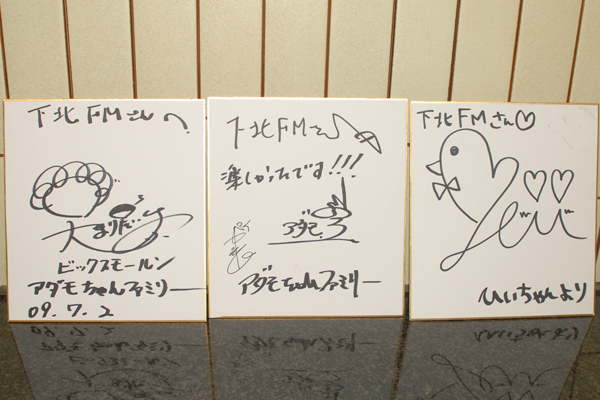 下北FMさんへ
ビックスモールン
アダモちゃんファミリー
09.7.2
下北FMさん
楽しかったです!!!
アダモちゃんファミリー
下北FMさん♡
♡♡
ひぃちゃんより